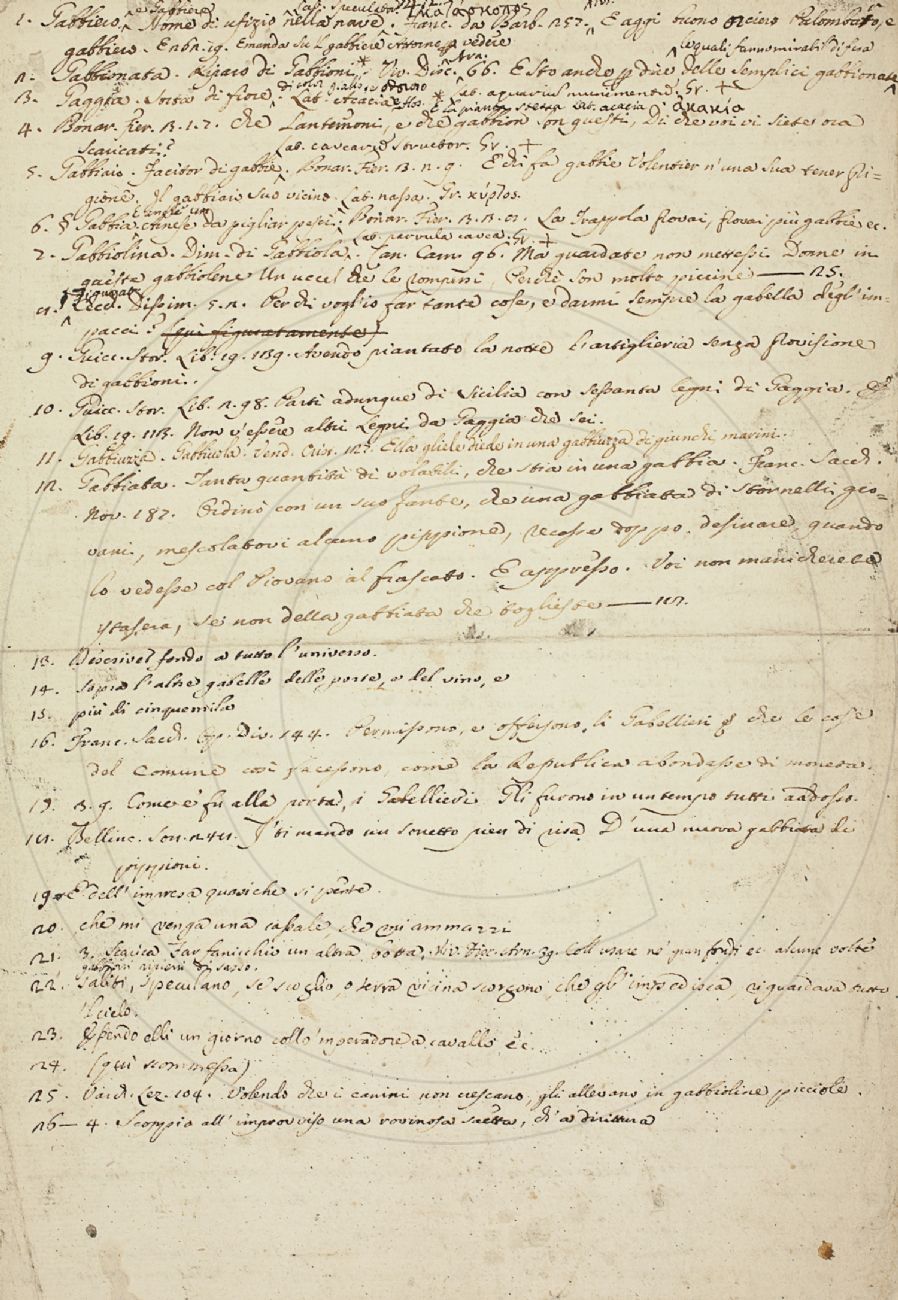 e Gabbiere
1. Gabbiero. Nome di ufizio nella nave. Franc. da Barb. 257. E aggi buono occiero Palombaro, e
gabbiero. Enbr. ig. Emenda su'l gabbiere Attorno p vedere
le quali fanno mirabil difesa
2. Gabbionata. Riparo di Gabbioni. Viv. Disc. 66. E sto anche p dire delle semplici gabbionate
3. Gaggia. Sorta di fiore. Lat. Acacia
è la pianta stessa Lat. acacia. ἀκακία
4. Bonar. Fier. 3. 1. 7. Che Lanternoni, e che gabbion son questi, Di che voi vi siete ora
scaricati?
5. Gabbiaio. Facitor di gabbie. Bonar. Fier. 3. 2. 9. E chi fa gabbie Volentier n'una sua tener pri=
gione Il gabbiaio suo vicino. Lat. nassa. Gr. κύρτος.
6. § Gabbia da pigliar pesci. Bonar. Fier. La Trappola provai, provai più gabbie ec.
Lat. parvula cavea. Gr. +
7. Gabbiolina. Dim. di Gabbiola. Can. Carn. 96. Ma guardate non mettessi Donne in
queste gabbioline Un uccel che le rompini, Perchè son molto piccine — 25.
figurat.
8. Lecch. Dissim. 5. 2. Perchè voglio far tante cose, e darmi sempre la gabella degl'im=
pacci? (qui figuratamente)
9. Guicc. Stor. Lib. 19. 139. Avendo piantato la notte l'artiglieria senza provisione
di gabbioni.
10. Guicc. Stor. Lib. 2. 98. Partì adunque di Sicilia con sessanta legni di Gaggia. E
Lib. 19. 113. Non v'essere altri Legni da Gaggia che sei.
11. Gabbiuzza. Gabbiuola. Vend. Crist. 127. Ella gliele diede in una gabbiuzza di giunchi marini.
12. Gabbiata. Tanta quantità di volatili, che stia in una gabbia. Franc. Sacch.
Nov. 187. Ordinò con un suo fante, che una gabbiata di stornelli gio=
vani, mescolatovi alcuno pippione, recasse doppo desinare, quando
lo vedesse col Piovano al frascato. E appresso. Voi non manicherete
stasera, se non della gabbiata che togliesti — 117.
13. Discrivel fondo a tutto l'universo.
14. sopra l'altre gabelle delle porte, e del vino, e
15. più di cinquemila
16. Franc. Sacch. Op. Div. 144. Permissono, e offersono, li Gabellieri che le cose
del Comune così facessono, come la Republica abondasse di moneta.
17. 3. 9. Come e' fu alla porta, i Gabellieri Gli furono in un tempo tutti addosso.
18. Bellinc. Son. 248. I' ti mando un sonetto pien di risa D'una nuova gabbiata di
pippioni.
19. E dell'impresa quasichè si pente.
20. che mi venga una cassale che mi ammazzi
21. 3. Scarica Far fanicchio un altra botta, Viv. Disc. Arn. 39. Coll'usare ne' gran fondi ec. alcune volte
gabbioni ripieni di sasso.
22. saliti, speculano, se scoglio, o terra vicina scorgono, che gl'impedisca, riguardava tutto
'l cielo.
23. Essendo elli un giorno collo'mperadore a cavallo ec.
24. (qui scommessa)
25. Varch. Lez. 104. Volendo che i canini non crescano, gli allevano in gabbioline picciole.
26 — 4. Scoppia all'improvviso una rovinosa saetta, ch'a dirittura